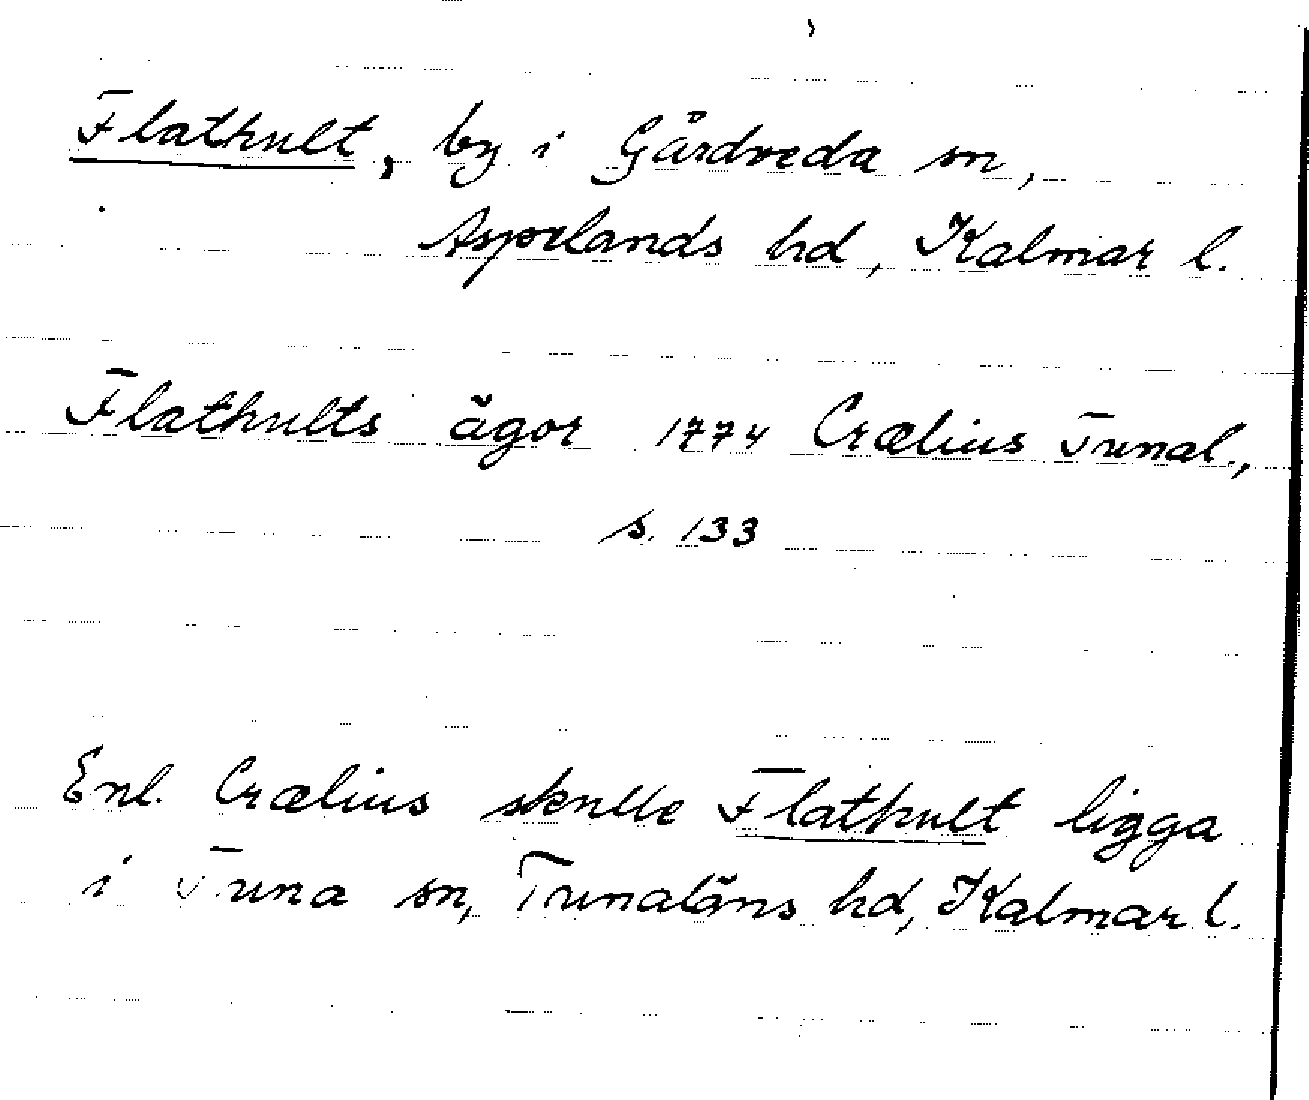 Flathult, by i Gårdveda sn,
Aspelands hd, Kalmar l.
Flathults ägor 1774 Crælius Tunal.,
s. 133
Enl. Crælius skulle Flathult ligga
i Tuna sn, Tunaläns hd, Kalmar l.